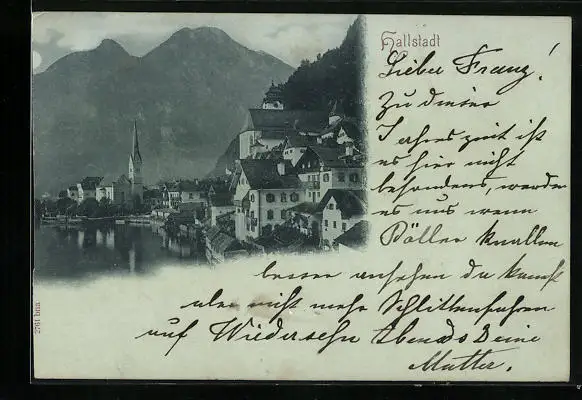 Hallstadt
Lieber Franz!
Zu dieser
Jahreszeit ist
es hier nicht
besonders, werde
es uns wenn
Böller knallen
besser ansehen du kannst
aber nicht mehr Schlittenfahren
auf Wiedersehn Abends Deine
Mutter.
2761 bna